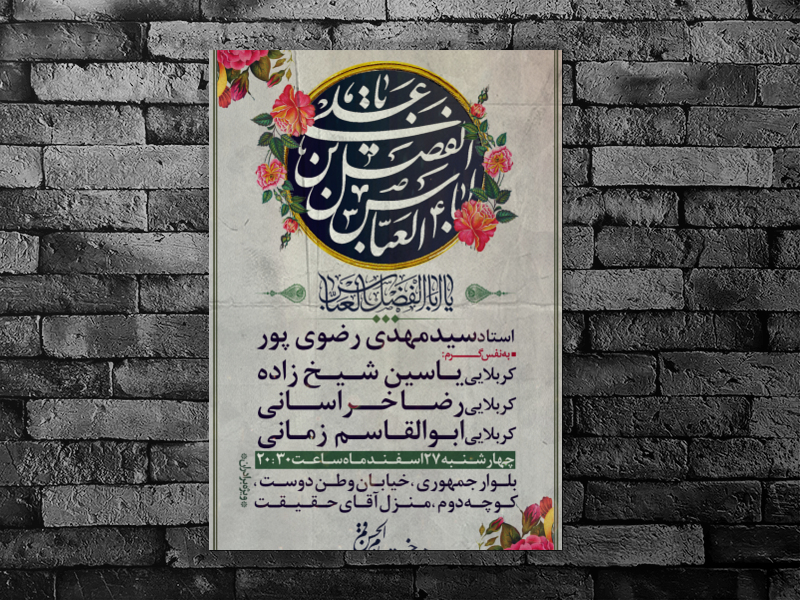 یا اباالفضل العباس
استاد سید مهدی رضوی پور
به نفس گرم:
کربلایی یاسین شیخ زاده
کربلایی رضا خراسانی
کربلایی ابوالقاسم زمانی
چهارشنبه ۲۷ اسفند ماه ساعت ۲۰:۳۰
بلوار جمهوری ، خیابان وطن دوست ،
کوچه دوم ، منزل آقای حقیقت
ویژه برادران